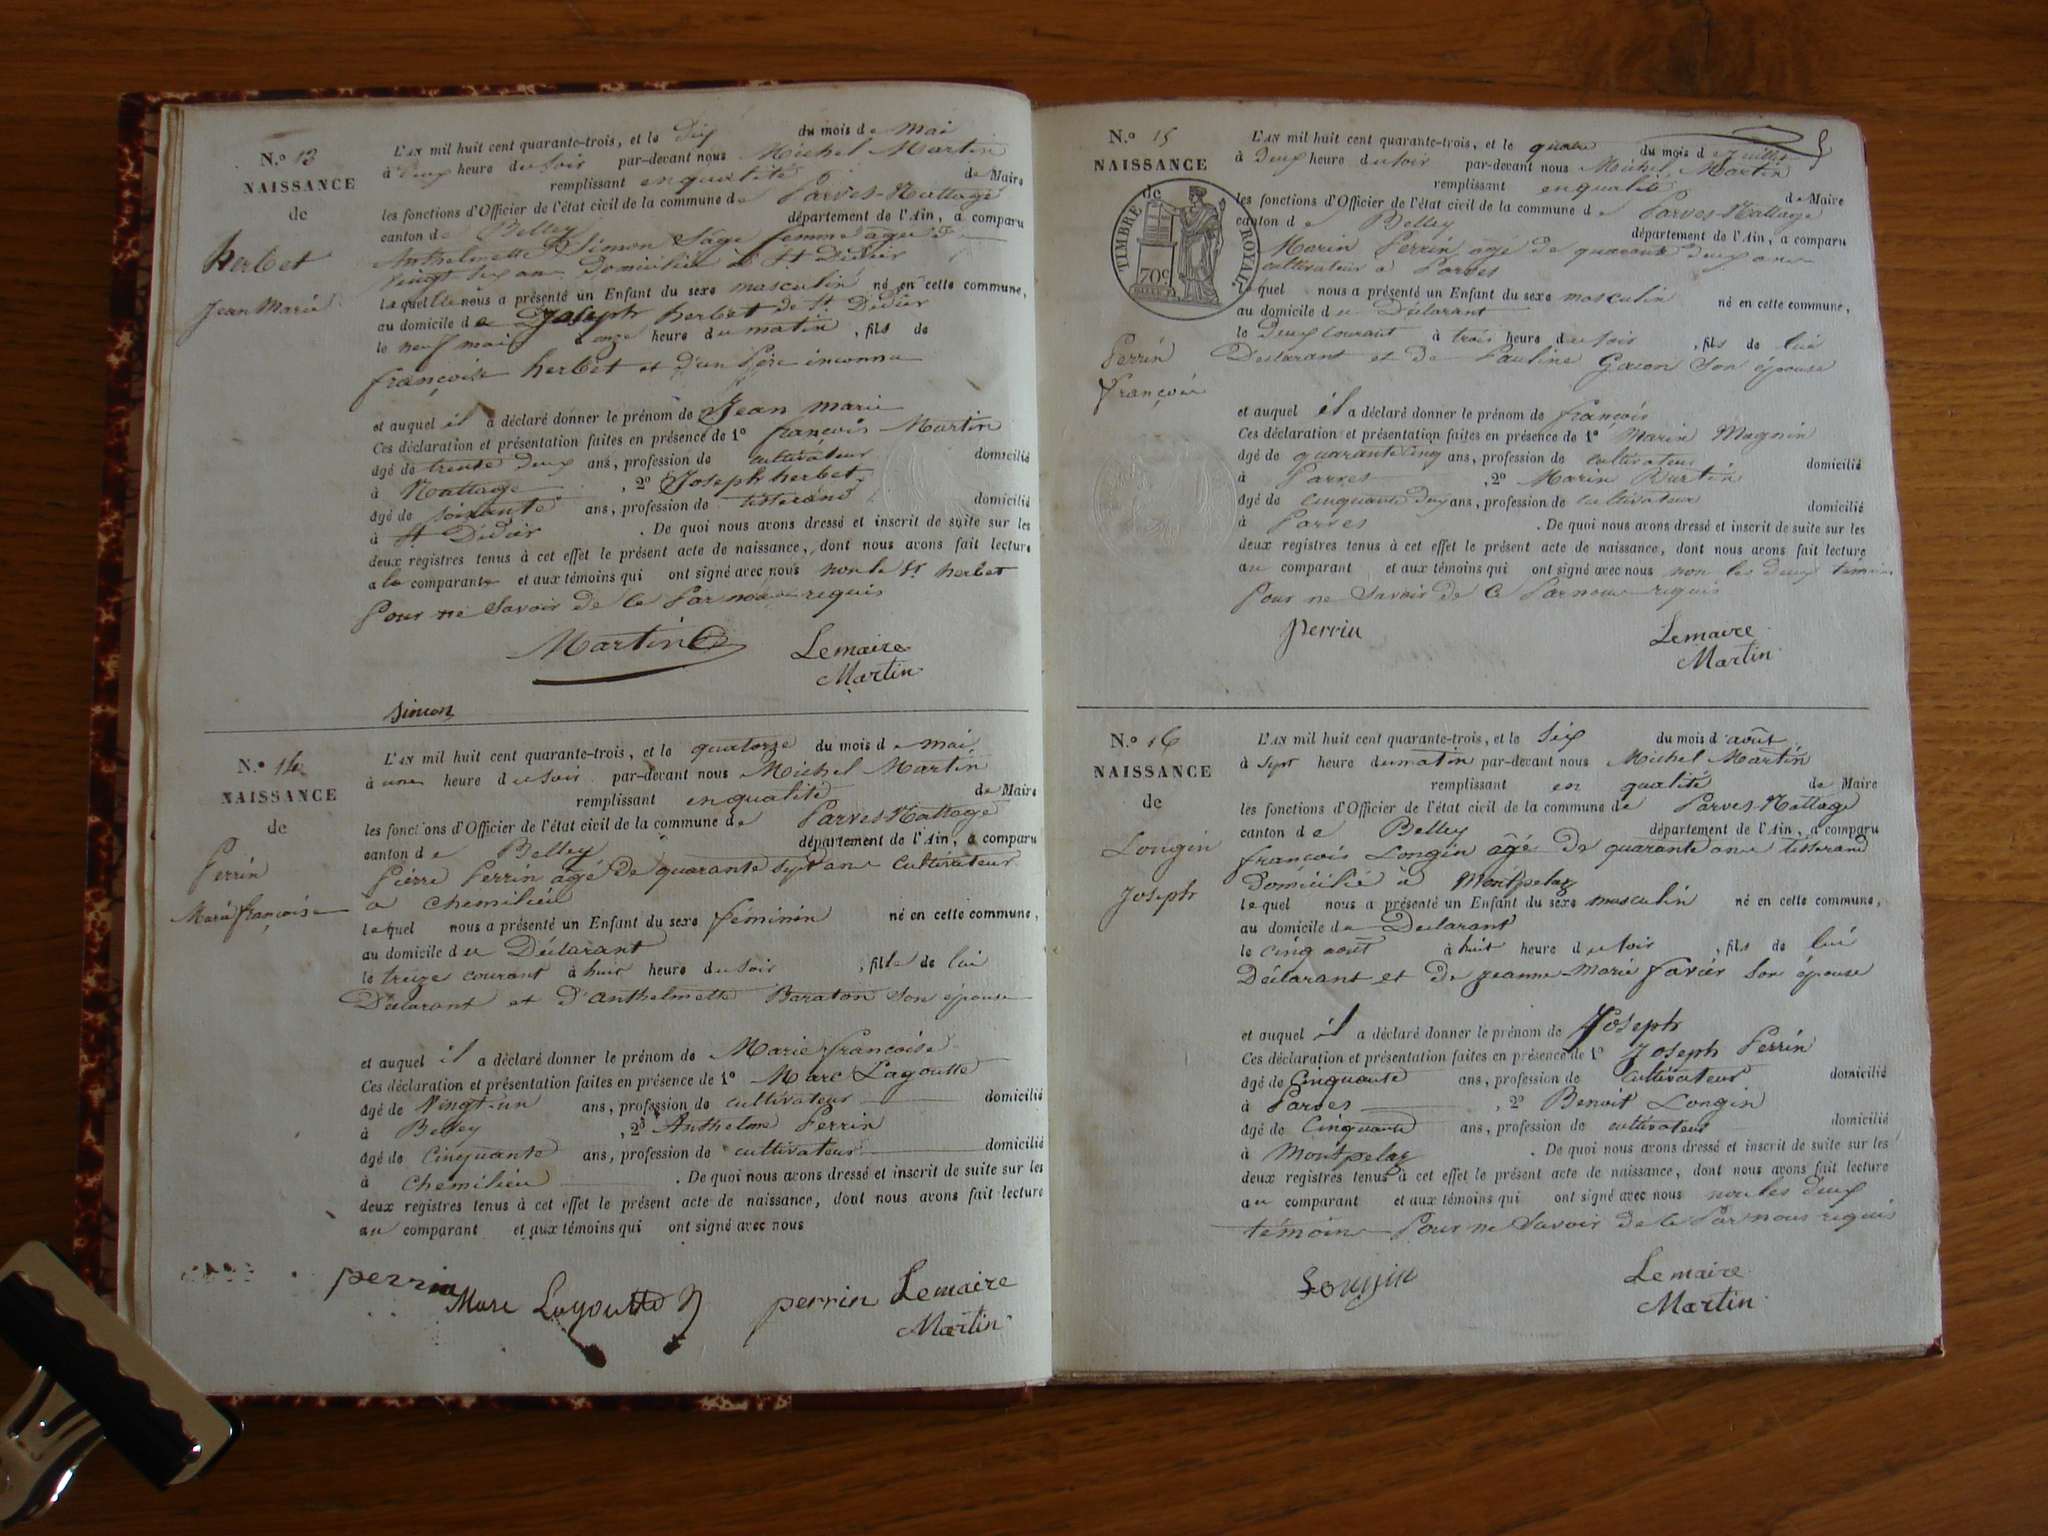 N.o 13
NAISSANCE
de
herbet
Jean Marie
L'AN mil huit cent quarante-trois, et le Dix du mois de Mai
à Deux heure du Soir par-devant nous Michel Martin
remplissant en qualité de Maire
les fonctions d'Officier de l'état civil de la commune de Parves-Nattage
canton de Belley département de l'Ain, a comparu
Anthelmette Simon Sage femme âgée de
vingt six ans Domiciliée à St Didier
laquelle nous a présenté un Enfant du sexe masculin né en cette commune,
au domicile de Joseph herbet de St Didier
le neuf mai à onze heure du matin, fils de
françoise herbet et d'un Père inconnu
et auquel il a déclaré donner le prénom de Jean marie
Ces déclaration et présentation faites en présence de 1º françois Martin
âgé de trente Deux ans, profession de cultivateur domicilié
à Nattage, 2º Joseph herbet
âgé de soixante ans, profession de tisserand domicilié
à St Didier. De quoi nous avons dressé et inscrit de suite sur les
deux registres tenus à cet effet le présent acte de naissance, dont nous avons fait lecture
a la comparante et aux témoins qui ont signé avec nous non le Sr herbet
Pour ne Savoir de ce Par nous requis
Martin
Lemaire
Martin
Simon
N.o 14
NAISSANCE
de
Perrin
Marie françoise
L'AN mil huit cent quarante-trois, et le quatorze du mois de mai
à une heure du soir par-devant nous Michel Martin
remplissant en qualité de Maire
les fonctions d'Officier de l'état civil de la commune de Parves-Nattage
canton de Belley département de l'Ain, a comparu
Pierre Perrin âgé De quarante sept an Cultivateur
a Chemilieu
lequel nous a présenté un Enfant du sexe féminin né en cette commune,
au domicile du Déclarant
le treize courant à huit heure du soir, fille de lui
Déclarant et d'Anthelmette Baraton Son épouse
et auquel il a déclaré donner le prénom de Marie françoise
Ces déclaration et présentation faites en présence de 1º Marc Lagoutte
âgé de Vingt-un ans, profession de cultivateur domicilié
à Belley, 2º Anthelme Perrin
âgé de Cinquante ans, profession de cultivateur domicilié
à Chemilieu. De quoi nous avons dressé et inscrit de suite sur les
deux registres tenus à cet effet le présent acte de naissance, dont nous avons fait lecture
au comparant et aux témoins qui ont signé avec nous
perrin Marc Lagoutte perrin Lemaire
Martin
5
N.o 15
NAISSANCE
de
TIMBRE ROYAL
70c
Perrin
françois
L'AN mil huit cent quarante-trois, et le quatre du mois de Juillet
à Deux heure du soir par-devant nous Michel Martin
remplissant en qualité de Maire
les fonctions d'Officier de l'état civil de la commune de Parves-Nattage
canton de Belley département de l'Ain, a comparu
Marin Perrin agé de quarante deux ans
cultivateur a Parves
lequel nous a présenté un Enfant du sexe masculin né en cette commune,
au domicile du Déclarant
le Deux courant à trois heure du soir, fils de lui
Déclarant et de Pauline Son épouse
et auquel il a déclaré donner le prénom de françois
Ces déclaration et présentation faites en présence de 1º Marin Magnin
âgé de quarante cinq ans, profession de cultivateur domicilié
à Parves, 2º Marin
âgé de Cinquante deux ans, profession de cultivateur domicilié
à Parves. De quoi nous avons dressé et inscrit de suite sur les
deux registres tenus à cet effet le présent acte de naissance, dont nous avons fait lecture
au comparant et aux témoins qui ont signé avec nous non les deux témoins
Pour ne Savoir de ce Par nous requis
perrin
Lemaire
Martin
N.o 16
NAISSANCE
de
Longin
Joseph
L'AN mil huit cent quarante-trois, et le Six du mois d'août
à Sept heure du matin par-devant nous Michel Martin
remplissant en qualité de Maire
les fonctions d'Officier de l'état civil de la commune de Parves-Nattage
canton de Belley département de l'Ain, a comparu
françois Longin âgé De quarante ans tisserand
Domicilié à Montpelaz
lequel nous a présenté un Enfant du sexe masculin né en cette commune,
au domicile du Déclarant
le cinq août à huit heure du soir, fils de lui
Déclarant et de Jeanne-Marie favier Son épouse
et auquel il a déclaré donner le prénom de Joseph
Ces déclaration et présentation faites en présence de 1º Joseph Perrin
âgé de Cinquante ans, profession de cultivateur domicilié
à Parves, 2º Benoit Longin
âgé de Cinquante ans, profession de cultivateur domicilié
à Montpelaz. De quoi nous avons dressé et inscrit de suite sur les
deux registres tenus à cet effet le présent acte de naissance, dont nous avons fait lecture
au comparant et aux témoins qui ont signé avec nous non les deux
témoins Pour ne Savoir de ce Par nous requis
Longin
Lemaire
Martin